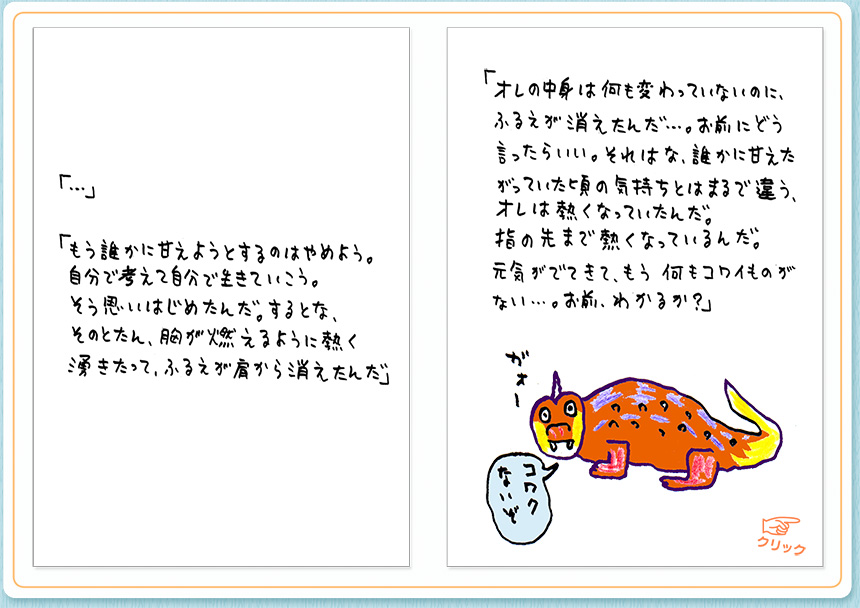 「…」
「もう誰かに甘えようとするのはやめよう。
自分で考えて自分で生きていこう。
そう思いはじめたんだ。するとな、
そのとたん、胸が燃えるように熱く
湧きたって、ふるえが肩から消えたんだ」
「オレの中身は何も変わっていないのに、
ふるえが消えたんだ…。お前にどう
言ったらいい。それはな、誰かに甘えた
がっていた頃の気持ちとはまるで違う、
オレは熱くなっていたんだ。
指の先まで熱くなっているんだ。
元気がでてきて、もう何もコワイものが
ない…。お前、わかるか？」
ガォー
コワク
ないぞ
クリック